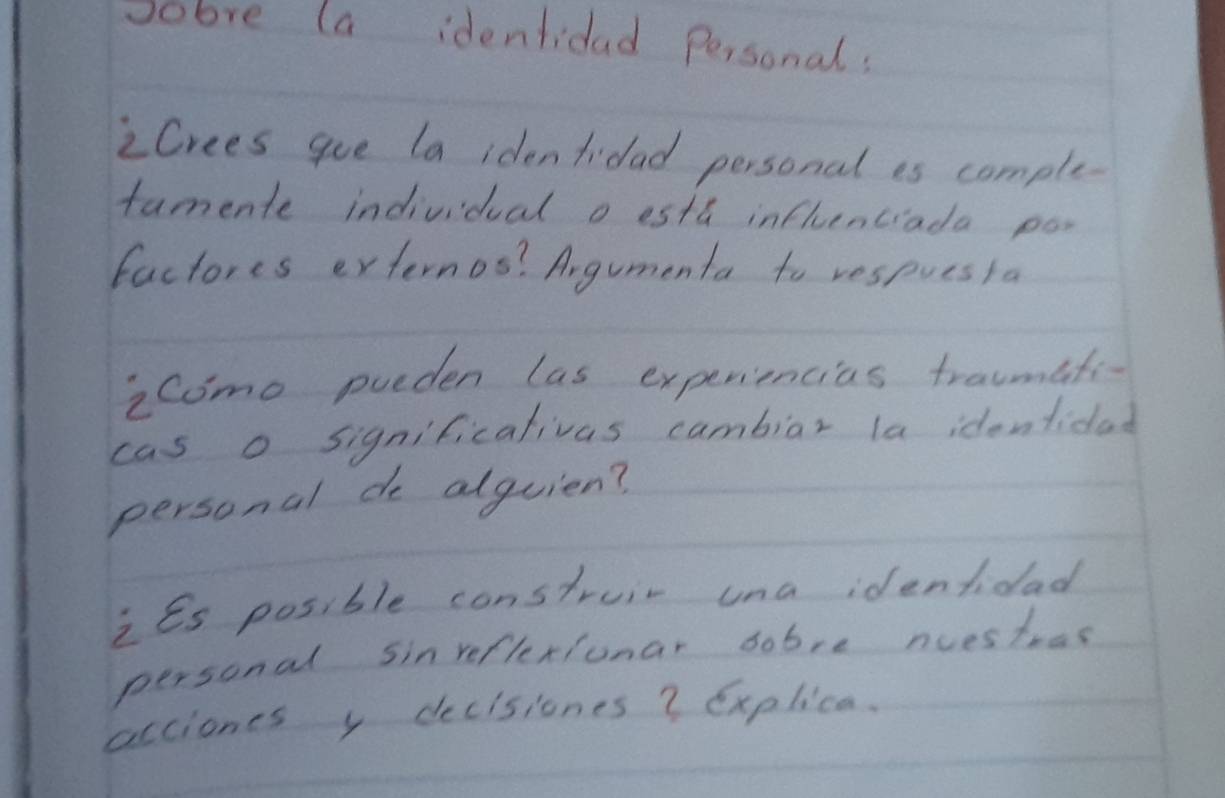 Sobre la identidad Personal:
¿Crees que la identidad personal es comple-
tamente individual o está influenciada por
factores externos? Argumenta tu respuesta
¿Cómo pueden las experiencias traumáti-
cas o significativas cambiar la identidad
personal de alguien?
¿Es posible construir una identidad
personal sin reflexionar sobre nuestras
acciones y decisiones? Explica.